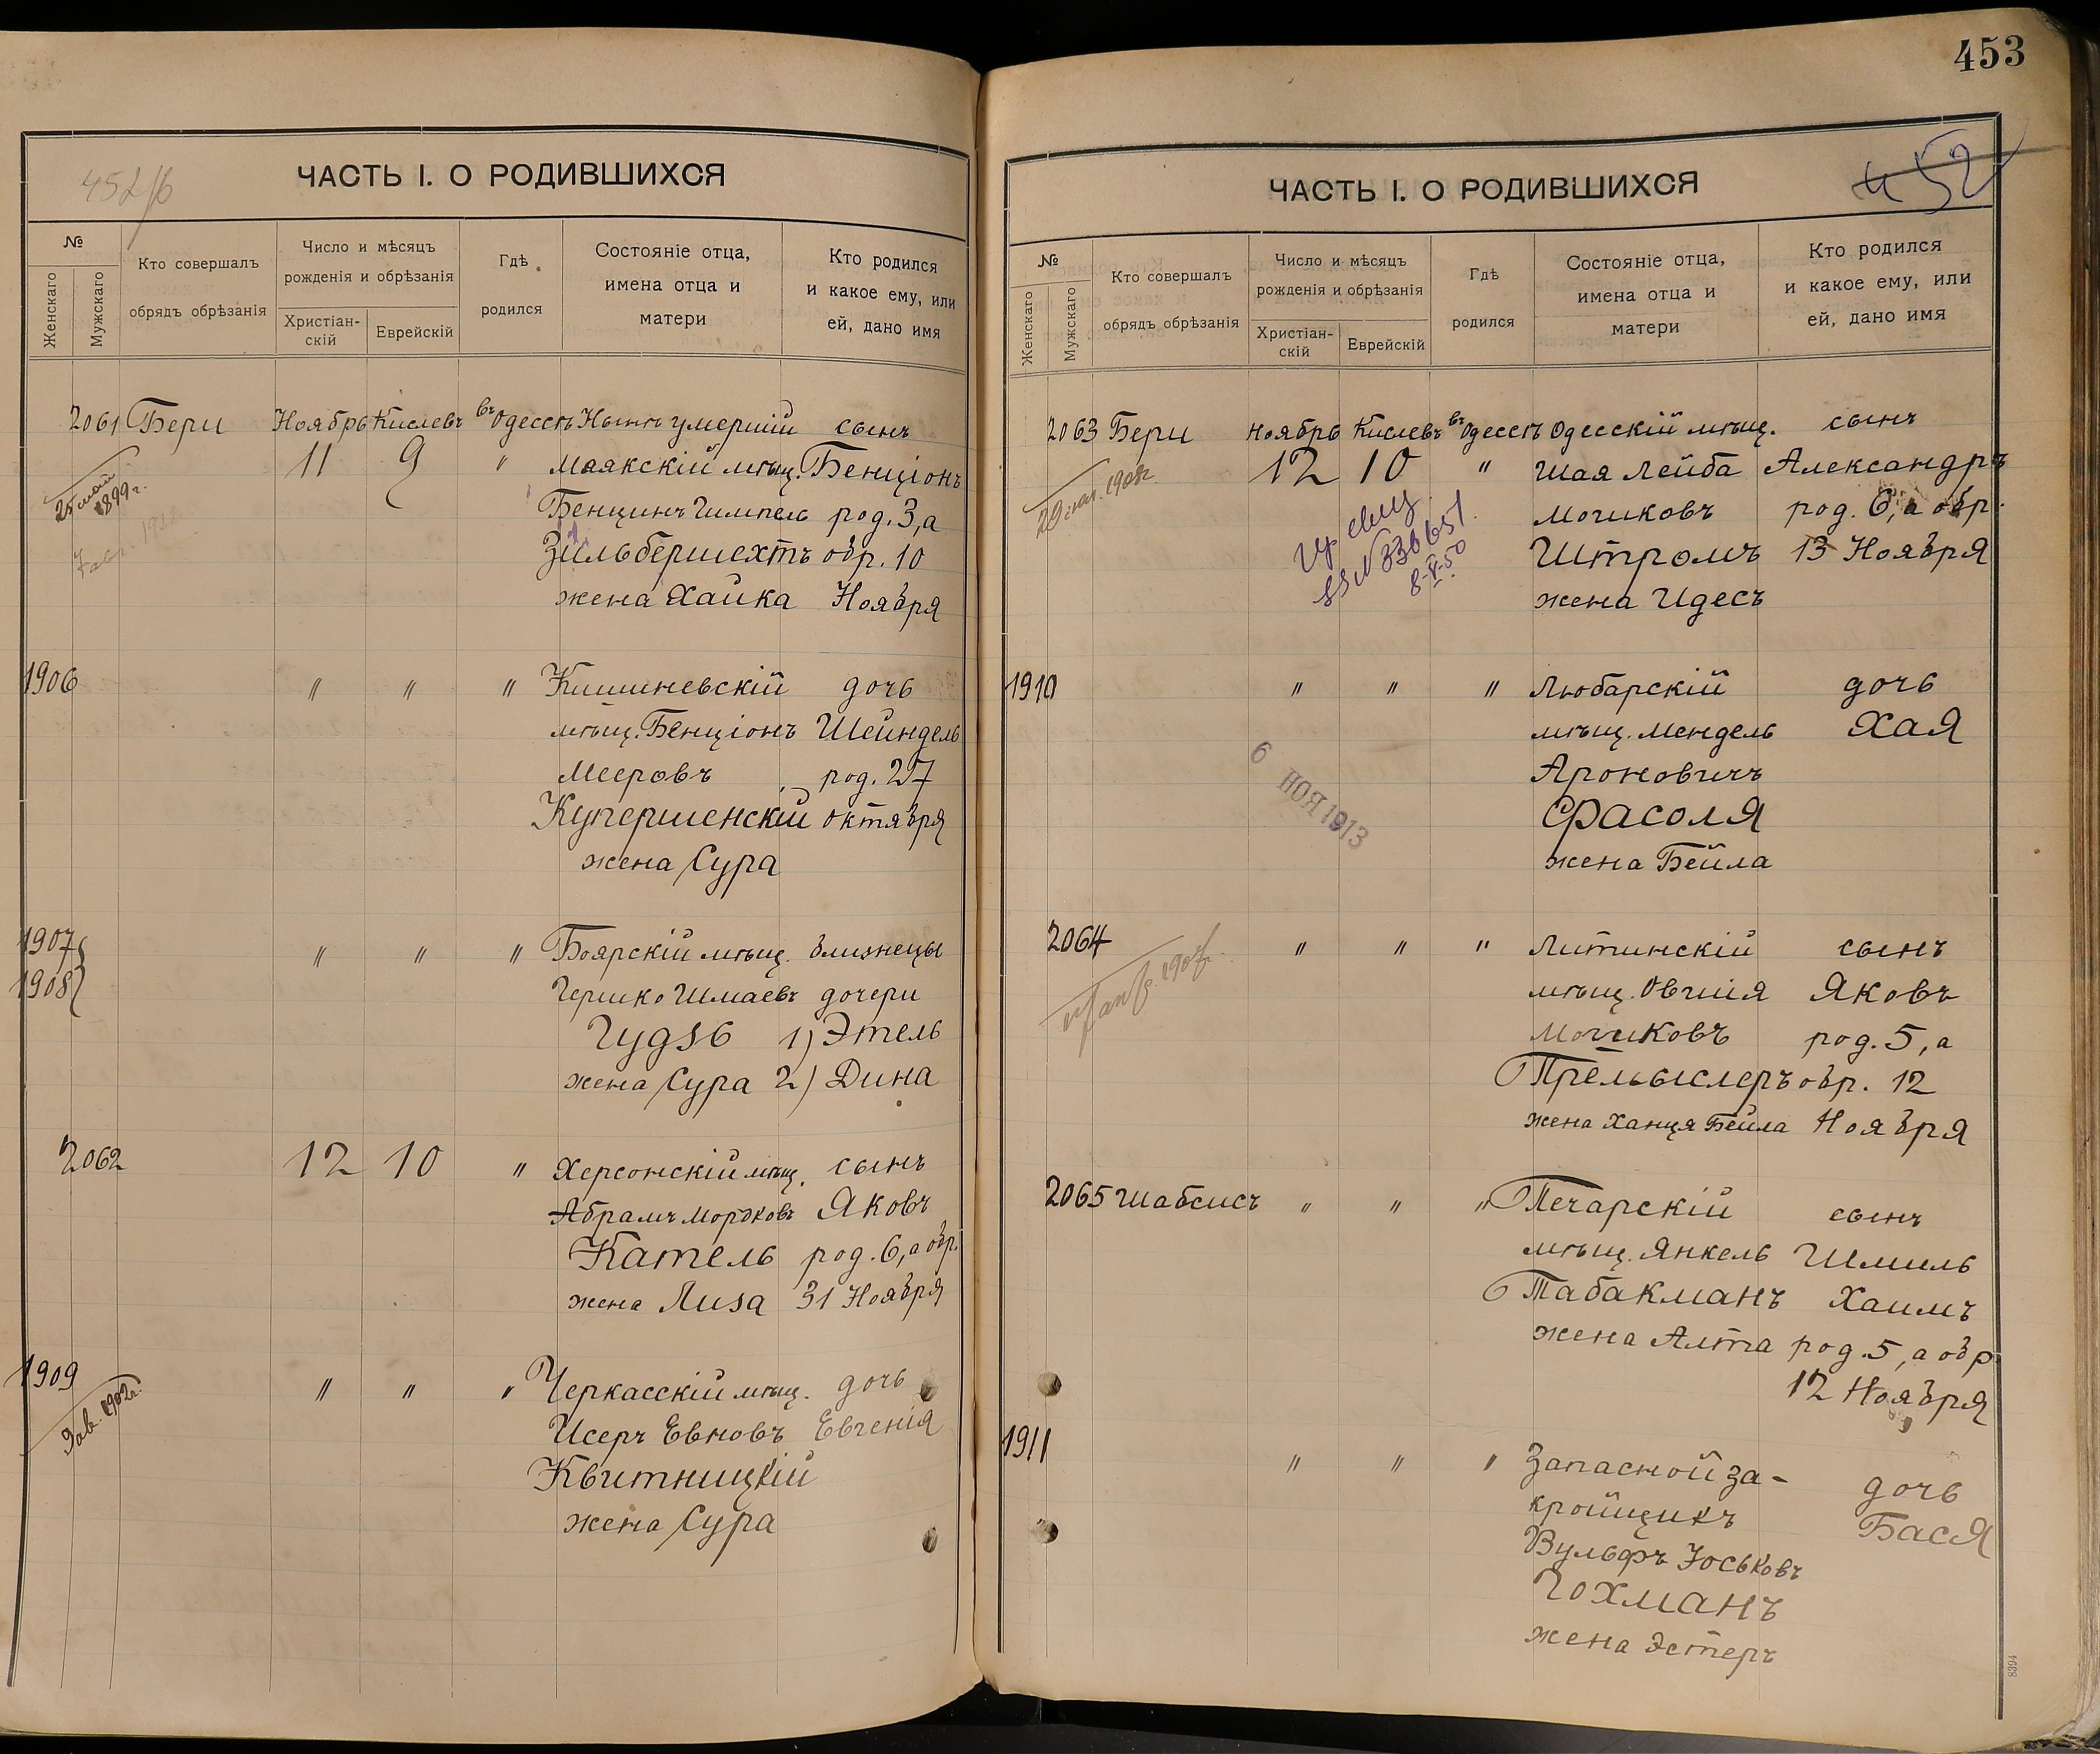 453
452/б
ЧАСТЬ I. О РОДИВШИХСЯ
№
Женскаго
Мужскаго
Кто совершалъ
обрядъ обрѣзанія
Число и мѣсяцъ
рожденія и обрѣзанія
Христіан-
скій
Еврейскій
Гдѣ
родился
Состояніе отца,
имена отца и
матери
Кто родился
и какое ему, или
ей, дано имя
2061 Бери Ноябрь Кислевъ въ Одессѣ Нынѣ умершій сынъ
11 9 " маякскій мѣщ. Бенціонъ
25 май 1899 г.
Бенцинъ Гимпель род. 3, а
Зильбершехтъ обр. 10
жена Хайка Ноября
1906 " " " Кишиневскій дочь
мѣщ. Бенціонъ Шейндель
Мееровъ род. 27
Купершенскій октября
жена Сура
1907 " " " Боярскій мѣщ. близнецы
1908 Гершко Шмаевъ дочери
Гудзь 1) Этель
жена Сура 2) Дина
2062 12 10 " Херсонскій мѣщ. сынъ
Абрамъ Мордковъ Яковъ
Катель род. 6, а обр.
жена Лиза 31 Ноября
1909 " " " Черкасскій мѣщ. дочь
9 ав. 1902 г.
Исеръ Евновъ Евгенія
Квитницкій
жена Сура
ЧАСТЬ I. О РОДИВШИХСЯ
452
№
Женскаго
Мужскаго
Кто совершалъ
обрядъ обрѣзанія
Число и мѣсяцъ
рожденія и обрѣзанія
Христіан-
скій
Еврейскій
Гдѣ
родился
Состояніе отца,
имена отца и
матери
Кто родился
и какое ему, или
ей, дано имя
2063 Бери Ноябрь Кислевъ въ Одессѣ Одесскій мѣщ. сынъ
12 10 " Шая Лейба Александръ
Мошковъ род. 6, а обр.
№ 336651
8-V-50
Штромъ 13 Ноября
жена Идесъ
1910 " " " Любарскій дочь
мѣщ. Мендель Хая
Ароновичъ
6 НОЯ 1913
Фрасоля
жена Бейла
2064 " " " Литинскій сынъ
мѣщ. Овшія Яковъ
Мошковъ род. 5, а
Прельвислеръ обр. 12
жена Ханця Бейла Ноября
2065 Шабсисъ " " " Печарскій сынъ
мѣщ. Янкель Шмиль
Табакманъ Хаимъ
жена Алта род. 5, а обр
12 Ноября
1911 " " " Запасной за-
кройщикъ дочь
Вульфъ Іоськовъ Бася
Гохманъ
жена Эстеръ
8394